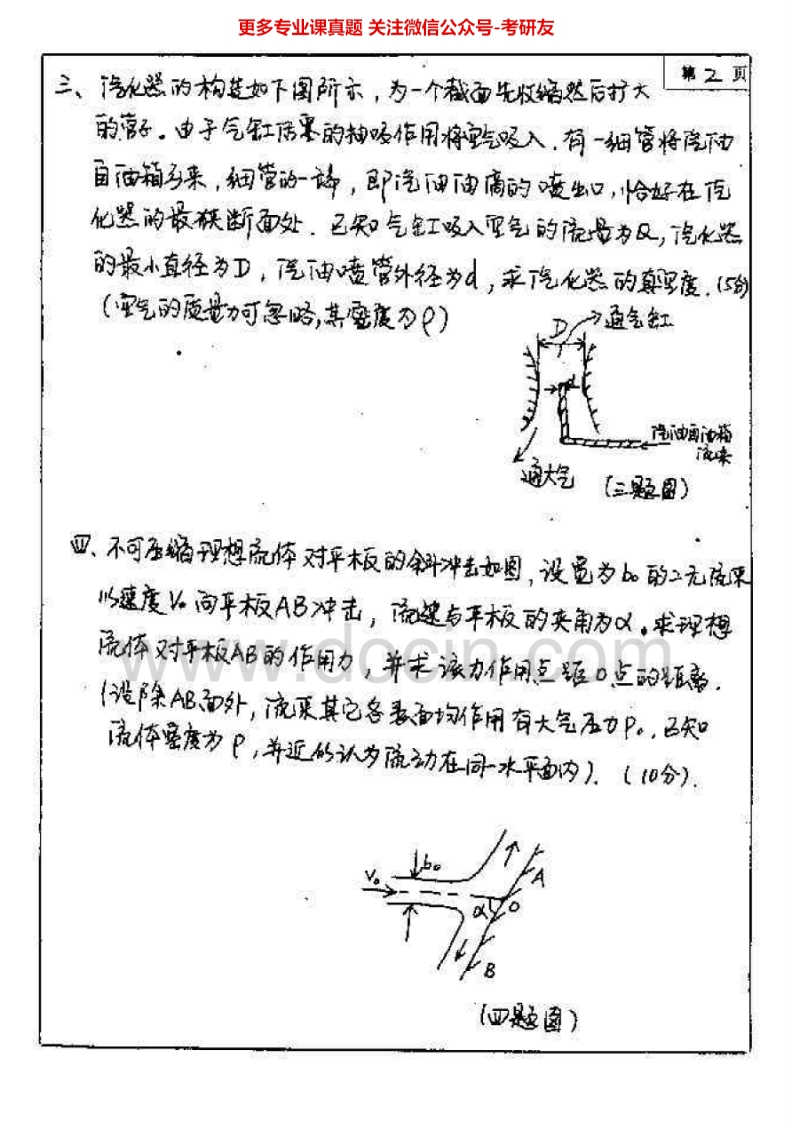 更多专业课真题 关注微信公众号-考研友
第 2 页
三、汽化器的构造如下图所示，为一个截面先收缩然后扩大
的管子。由于气缸活塞的抽吸作用将空气吸入，有一细管将汽油
自油箱引来，细管的一端，即汽油油滴的喷出口，恰好在汽
化器的最狭断面处．已知气缸吸入空气的流量为Q，汽化器
的最小直径为D，汽油喷管外径为d，求汽化器的真空度．(5分)
(空气的质量力可忽略，其密度为ρ)
D
通气缸
d
汽油自油箱
流来
通大气
(三题图)
四、不可压缩理想流体对平板的斜冲击如图，设宽为b₀的二元流束
以速度V₀向平板AB冲击，流速与平板的夹角为α。求理想
流体对平板AB的作用力，并求该力作用点距O点的距离．
(设除AB面外，流束其它各表面均作用有大气压力P₀．已知
流体密度为ρ，并近似认为流动在同一水平面内)．(10分)．
www.docin.com
b₀
V₀
A
α
O
B
(四题图)